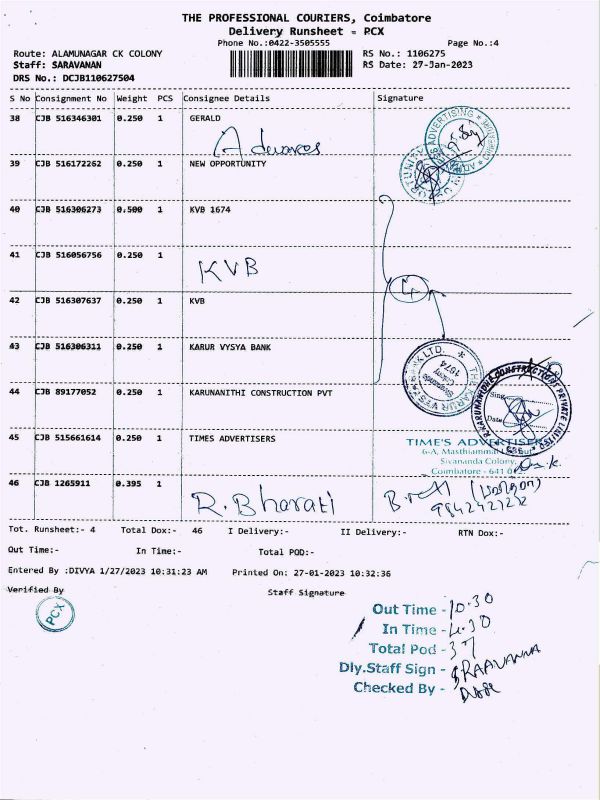 THE PROFESSIONAL COURIERS, Coimbatore
Delivery Runsheet - PCX
Phone No.:0422-3505555
Page No.:4
Route: ALAMUNAGAR CK COLONY
RS No.: 1106275
Staff: SARAVANAN
RS Date: 27-Jan-2023
DRS No.: DCJB110627504
S No Consignment No Weight PCS Consignee Details Signature
38 CJB 516346301 0.250 1 GERALD
39 CJB 516172262 0.250 1 NEW OPPORTUNITY
40 CJB 516306273 0.500 1 KVB 1674
41 CJB 516056756 0.250 1 KVB
42 CJB 516307637 0.250 1 KVB
43 CJB 516306311 0.250 1 KARUR VYSYA BANK
44 CJB 89177052 0.250 1 KARUNANITHI CONSTRUCTION PVT
45 CJB 515661614 0.250 1 TIMES ADVERTISERS
TIME'S ADVERTISERS
Sivananda Colony,
46 CJB 1265911 0.395 1 R. Bharati
9842421272
Tot. Runsheet:- 4 Total Dox:- 46 I Delivery:- II Delivery:- RTN Dox:-
Out Time:- In Time:- Total POD:-
Entered By :DIVYA 1/27/2023 10:31:23 AM Printed On: 27-01-2023 10:32:36
Verified By Staff Signature
PCX
Out Time - 10.30
In Time - 4.30
Total Pod - 37
Dly.Staff Sign -
Checked By -